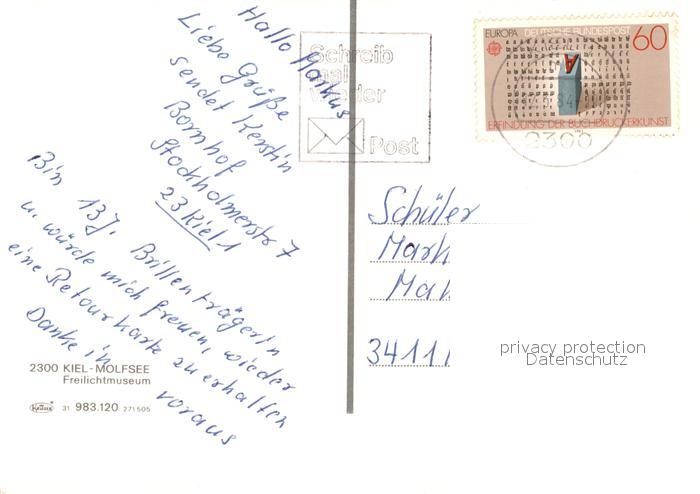 Hallo Markus
Liebe Grüße
sendet Kerstin
Bornhof
Stockholmerstr 7
23 Kiel 1
Bin 13 J. Brillenträgerin
u. würde mich freuen, wieder
eine Retourkarte zu erhalten
Danke in
voraus
2300 KIEL-MOLFSEE
Freilichtmuseum
Krüger 31 983.120 271505
Schreib
mal
wieder
Post
EUROPA DEUTSCHE BUNDESPOST 60
A
ERFINDUNG DER BUCHDRUCKERKUNST
2300
Schüler
Mark
Mah
34111
privacy protection
Datenschutz